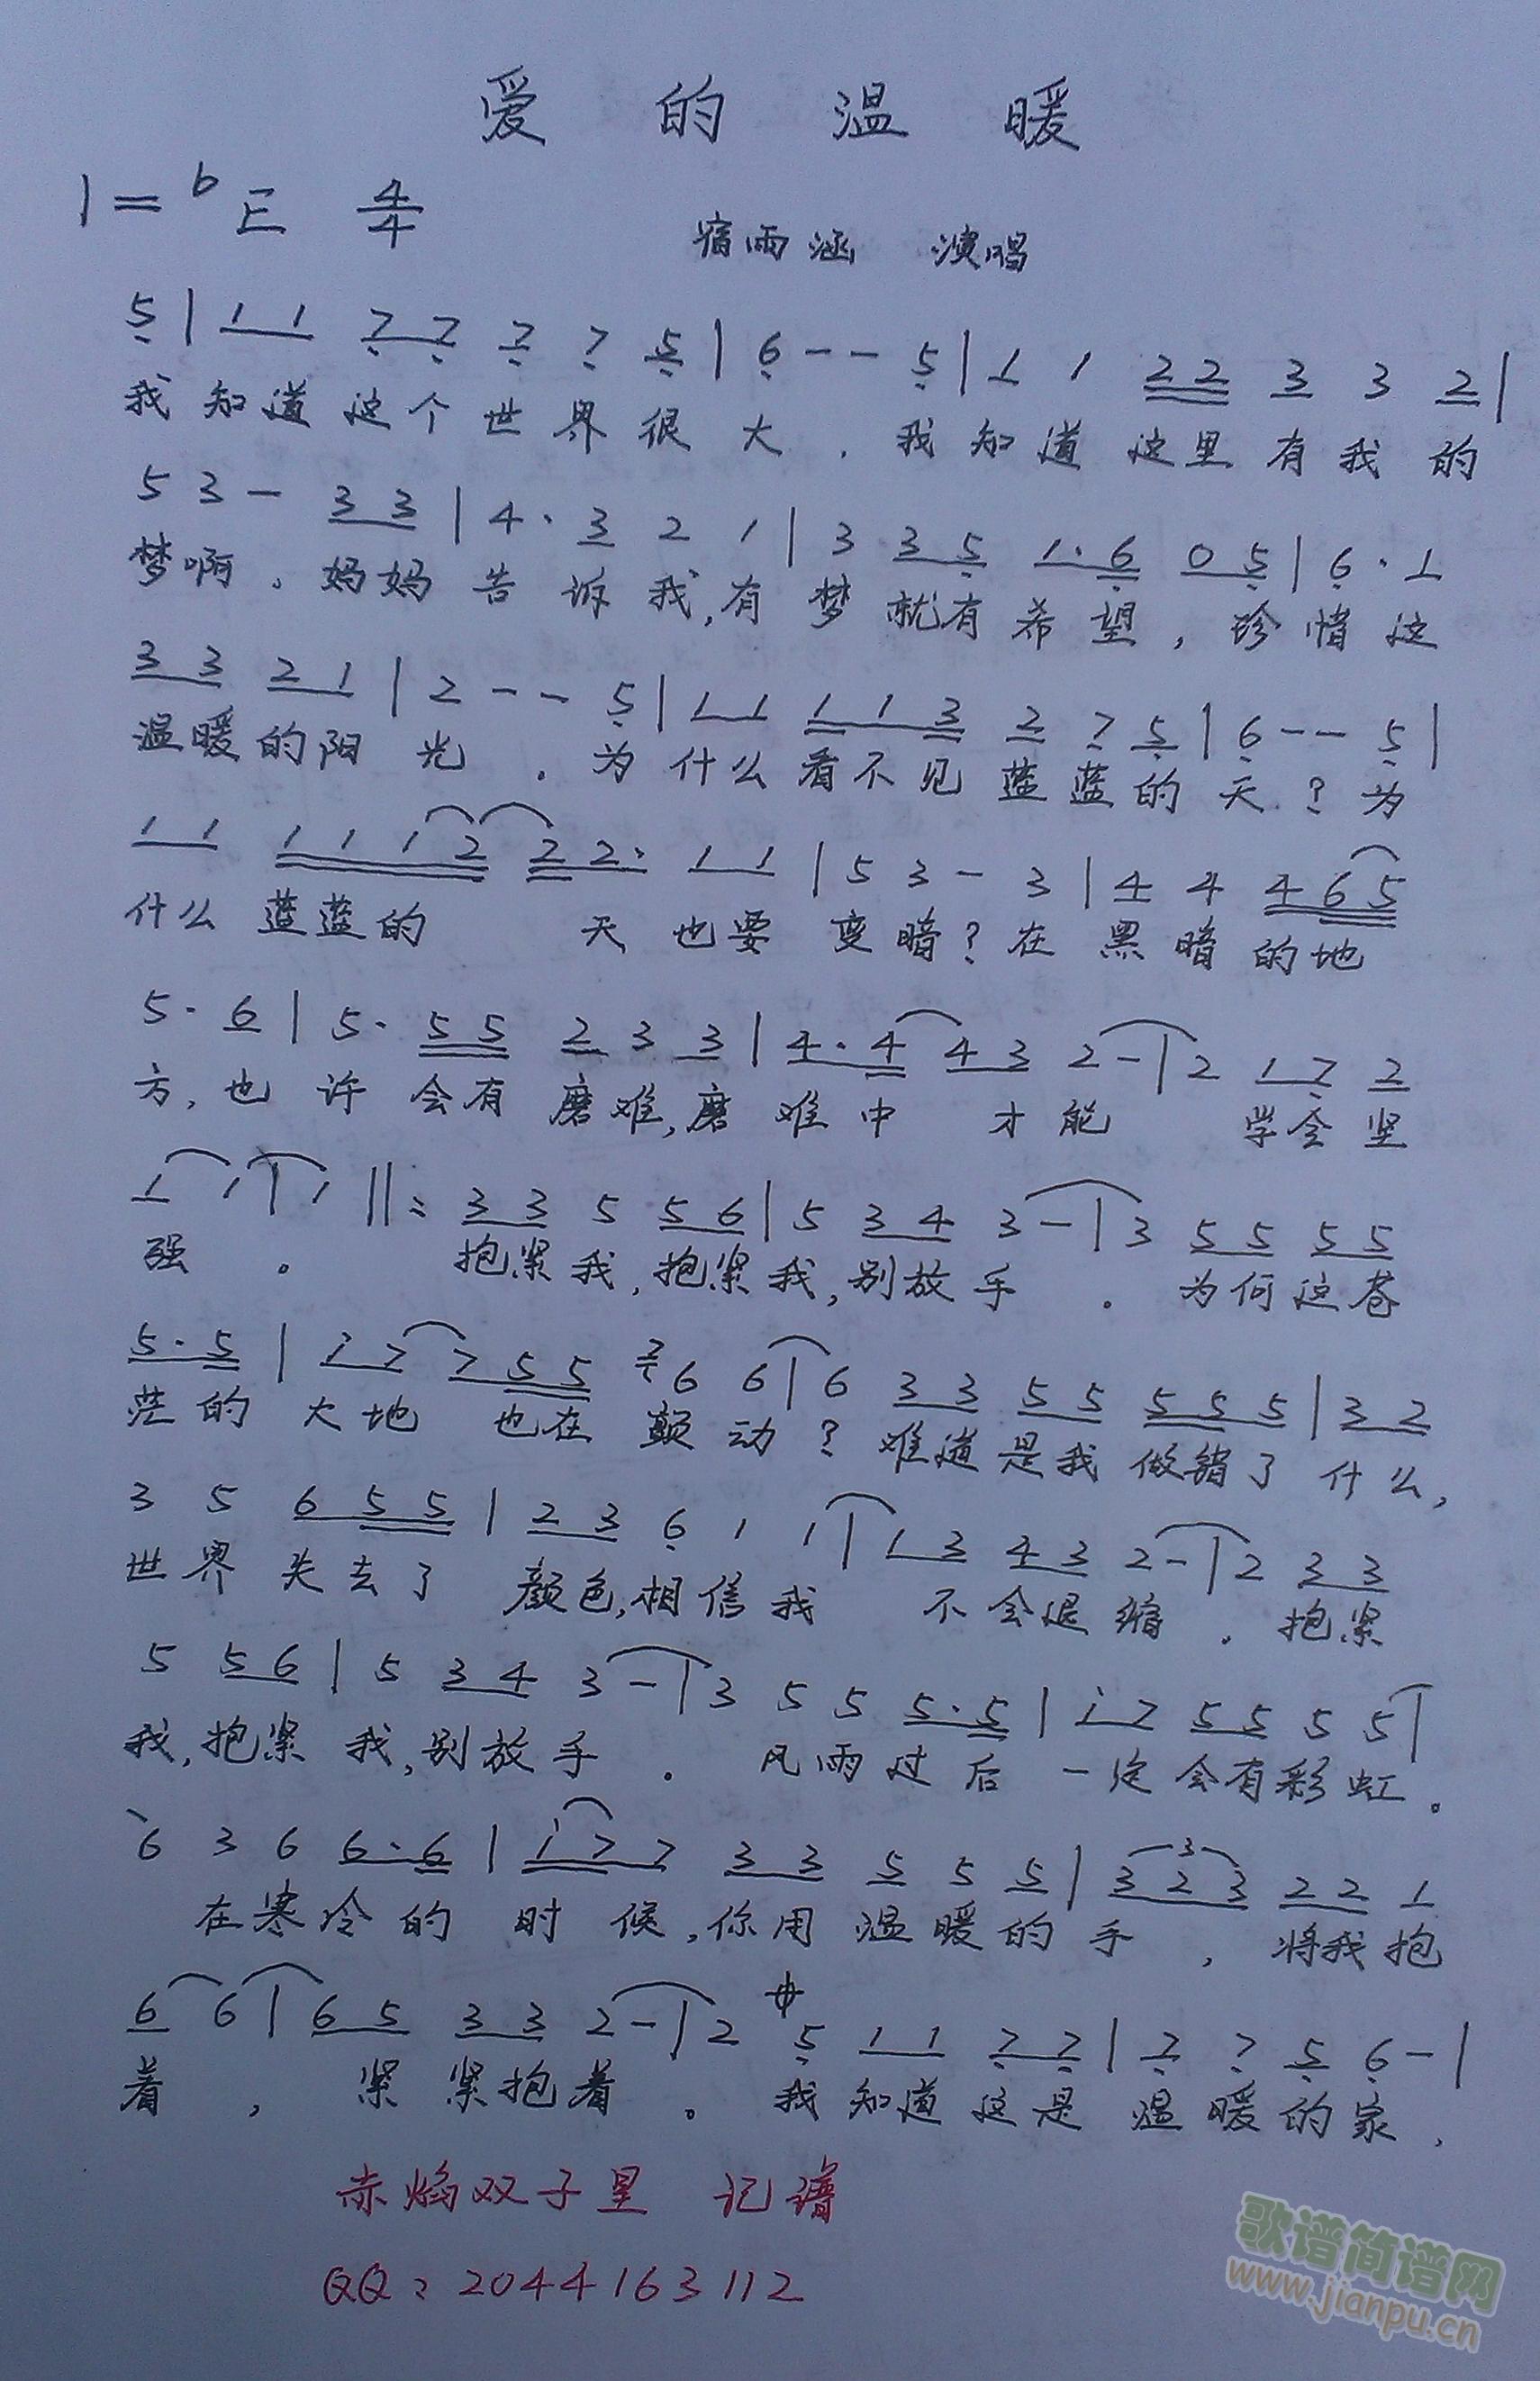 爱的温暖
1=bE 4/4
宿雨涵 演唱
5 | 1 1 7 7 7 7 5 | 6 - - 5 | 1 1 2 2 3 3 2 |
我知道这个世界很大.我知道这里有我的
5 3 - 3 3 | 4 · 3 2 1 | 3 3 5 1 · 6 0 5 | 6 · 1
梦啊。妈妈告诉我,有梦就有希望,珍惜这
3 3 2 1 | 2 - - 5 | 1 1 1 1 3 2 7 5 | 6 - - 5 |
温暖的阳光.为什么看不见蓝蓝的天?为
1 1 1 1 1 2 2 2 · 1 1 | 5 3 - 3 | 4 4 4 6 5
什么蓝蓝的 天也要变暗?在黑暗的地
5 · 6 | 5 · 5 5 2 3 3 | 4 · 4 4 3 2 - | 2 1 7 2
方,也许会有磨难,磨难中 才能 学会坚
1 1 | 1 ‖: 3 3 5 5 6 | 5 3 4 3 - | 3 5 5 5 5
强。 抱紧我,抱紧我,别放手。为何这苍
5 · 5 | i 7 7 5 5 7 6 6 | 6 3 3 5 5 5 5 5 | 3 2
茫的大地 也在颤动?难道是我做错了什么,
3 5 6 5 5 | 2 3 6 1 1 | 1 3 4 3 2 - | 2 3 3
世界失去了颜色,相信我 不会退缩.抱紧
5 5 6 | 5 3 4 3 - | 3 5 5 5 · 5 | i 7 5 5 5 5 |
我,抱紧我,别放手。风雨过后一定会有彩虹。
6 3 6 6 · 6 | i 7 7 3 3 5 5 5 | 3 2 3 2 2 1
在寒冷的时候,你用温暖的手,将我抱
6 6 | 6 5 3 3 2 - | 2 5 1 1 7 7 | 7 7 5 6 - |
着, 紧紧抱着。我知道这是温暖的家,
赤焰双子星 记谱
QQ:2044163112
歌谱简谱网
www.jianpu.cn